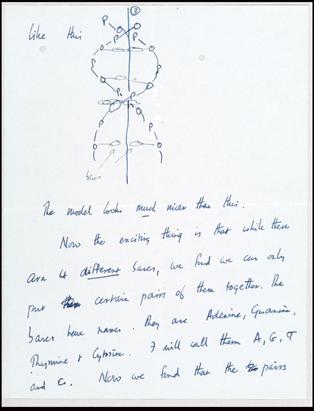 Like this
P
P
P
P
P
P
P
P
P
P
bases
The model looks much nicer than this.
Now the exciting thing is that while there
are 4 different bases, we find we can only
put certain pairs of them together. The
bases have names. They are Adenine, Guanine,
Thymine & Cytosine. I will call them A, G, T
and C. Now we find that the pairs